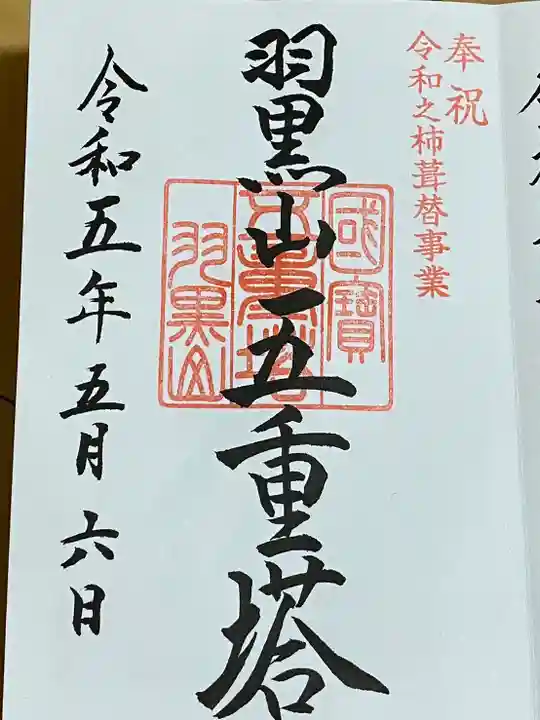 奉祝
令和之杮葺替事業
羽黒山五重塔
國寶
五重塔
羽黒山
令和五年五月六日